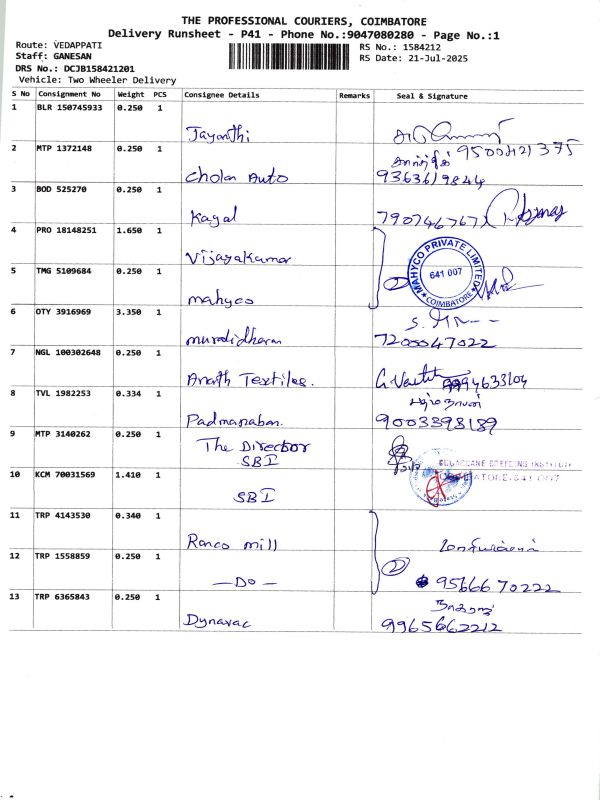 THE PROFESSIONAL COURIERS, COIMBATORE
Delivery Runsheet - P41 - Phone No.:9047080280 - Page No.:1
Route: VEDAPPATI
RS No.: 1584212
Staff: GANESAN
RS Date: 21-Jul-2025
DRS No.: DCJB158421201
Vehicle: Two Wheeler Delivery
S No Consignment No Weight PCS Consignee Details Remarks Seal & Signature
1 BLR 150745933 0.250 1
Jayanthi
2 MTP 1372148 0.250 1
Cholan Auto 9363619844
3 BOD 525270 0.250 1
Kayal
4 PRO 18148251 1.650 1
Vijayakumar
MAHYCO PRIVATE LIMITED
641 007
COIMBATORE
5 TMG 5109684 0.250 1
mahyco
6 OTY 3916969 3.350 1
muralidharan 7200047022
7 NGL 100302648 0.250 1
Textiles.
8 TVL 1982253 0.334 1
Padmanaban. 9003393189
9 MTP 3140262 0.250 1
The Director
SBI
SUGARCANE BREEDING INSTITUTE
COIMBATORE-641 007
10 KCM 70031569 1.410 1
SBI
11 TRP 4143530 0.340 1
Ranco mill
12 TRP 1558859 0.250 1
—Do— 2 9566670222
13 TRP 6365843 0.250 1
Dynavac 9965662212